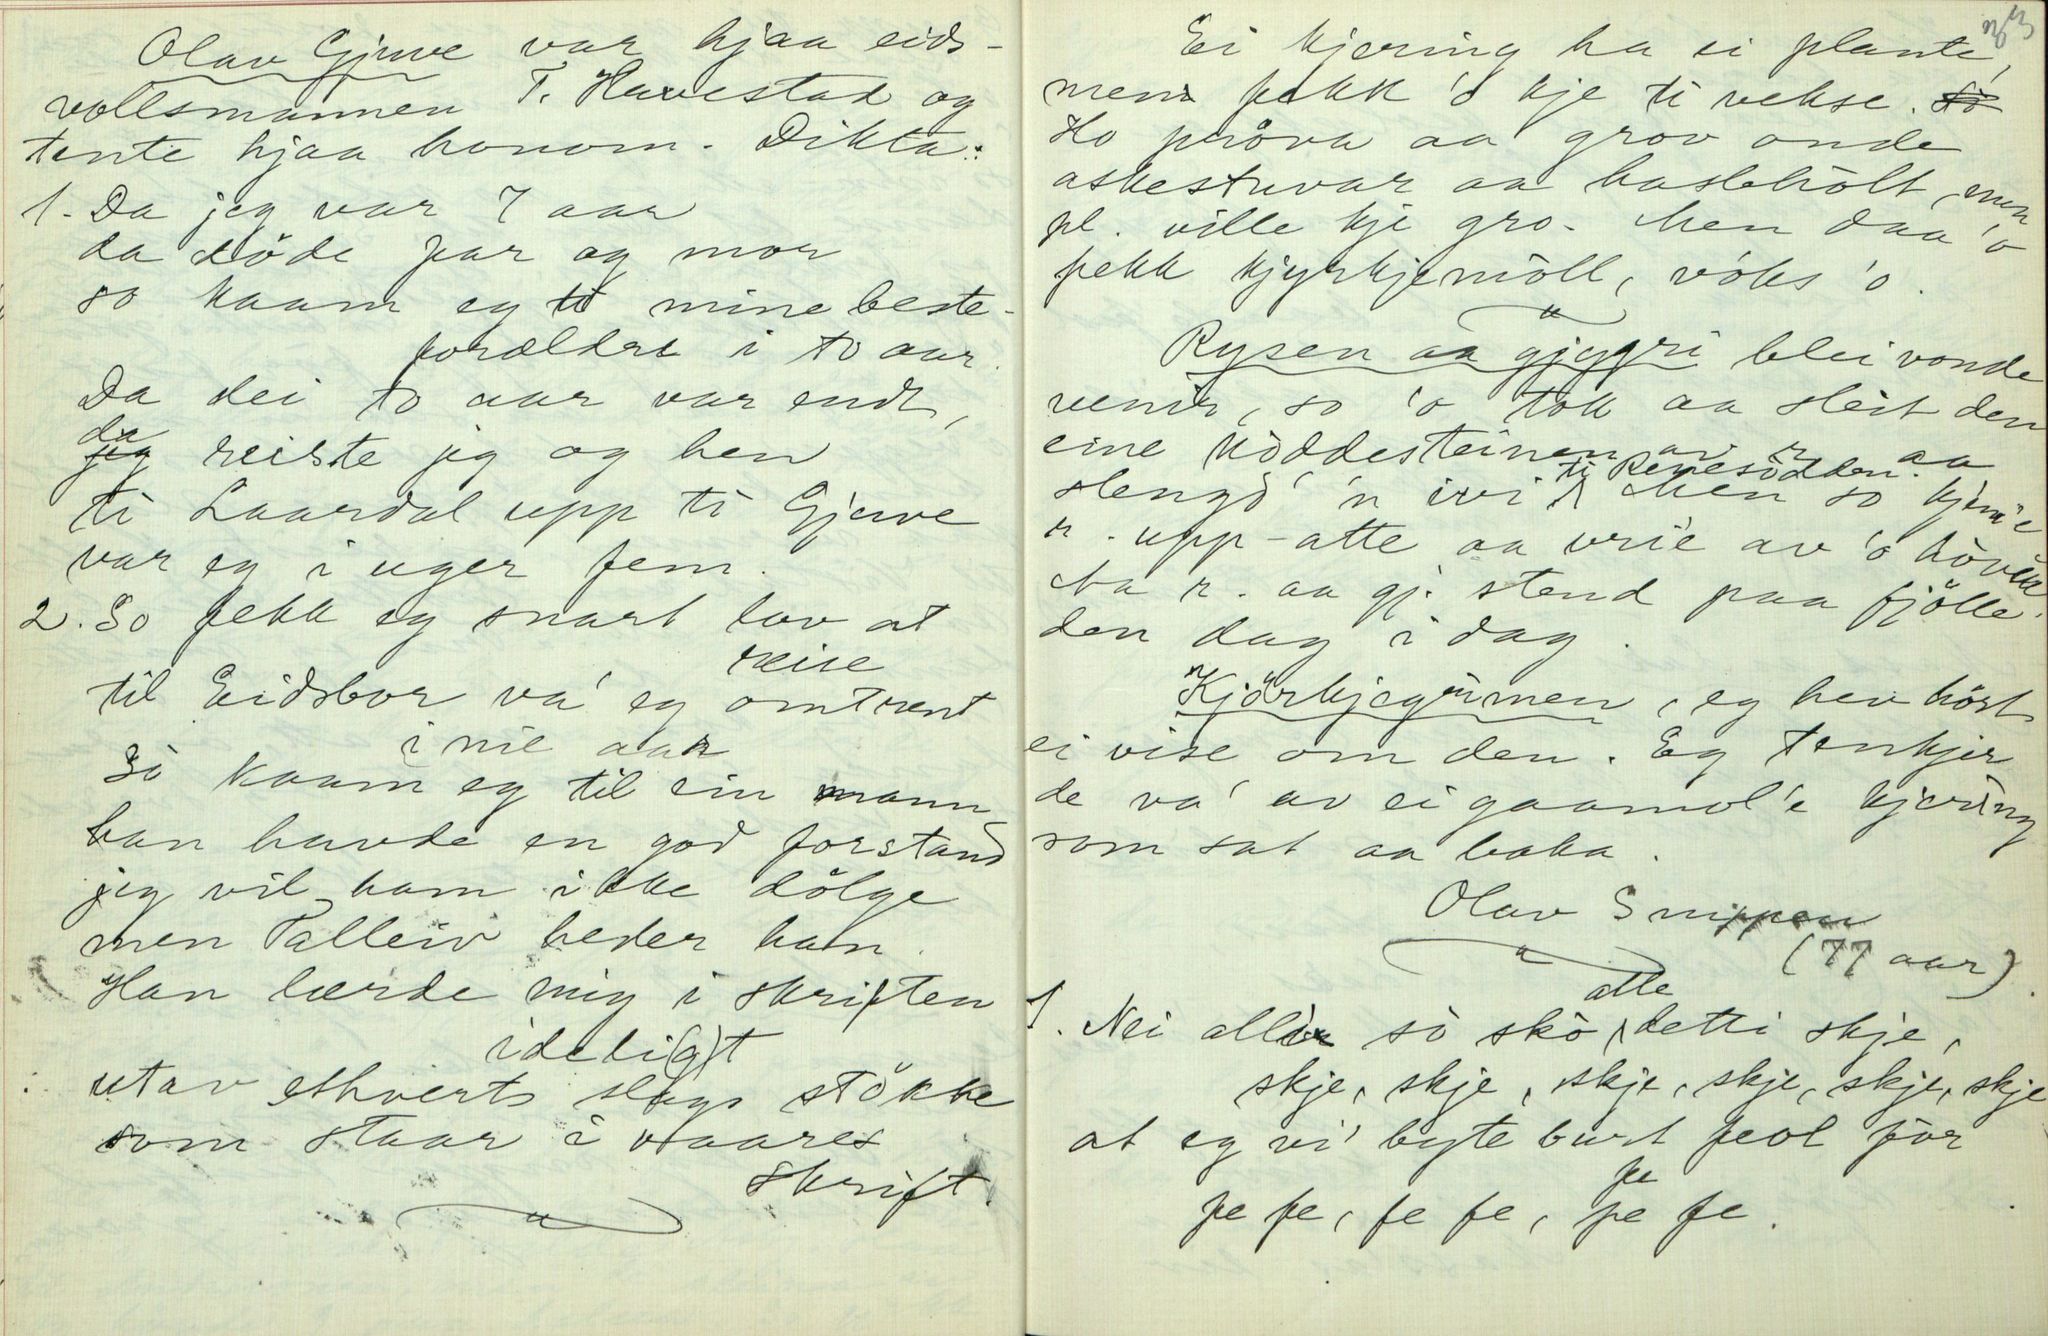 Olav Gjuve var hjaa eids-
vollsmannen T. Huvestad og
tente hjaa honom. Dikta:
1. Da jeg var 7 aar
da döde far og mor
so kaam eg ti mine beste-
forældre i to aar.
Da dei to aar var endt,
da
jeg reiste jeg og hen
ti Laardal upp ti Gjuve
var eg i uger fem.
2. So fekk eg snart lov at
reise
til Eidsbor va' eg omtrent
i nie aar
So kaam eg til ein mann
han havde en god forstand
jeg vil ham ikke dölge
men Talleiv heder han.
Han lærde mig i skriften
ideli(g)t
utav ethverts slags stökke
som staar i vaares
skrift.
33
Ei kjering ha ei plante,
men fekk 'o kje ti vekse. So
Ho pröva aa grov onde
askestuvar aa haslehòlt, men
pl. ville kje gro. Men daa 'o
fekk kjyrkjemòll, vóks 'o.
Rysen aa gjygri blei vonde
venir, so 'o tok aa sleit den
eine nòddesteinen av r. aa
slengd' 'n ivi ti Revesòdden. Men so kjem'e
r. upp-atte aa vrie av 'o hòvu.
r. aa gj. stend paa fjölle
den dag i dag.
"Kjörkjegrimen, eg hev hört
ei vise om den. Eg tenkjer
de va' av ei gaamol'e kjering
som sat aa baka.
Olav Snippen
(77 aar).
1. Nei allir sò skò atte detti skje,
skje, skje, skje, skje, skje, skje
at eg vi' byte burt feol fòr
fe
fe fe, fe fe, fe fe.